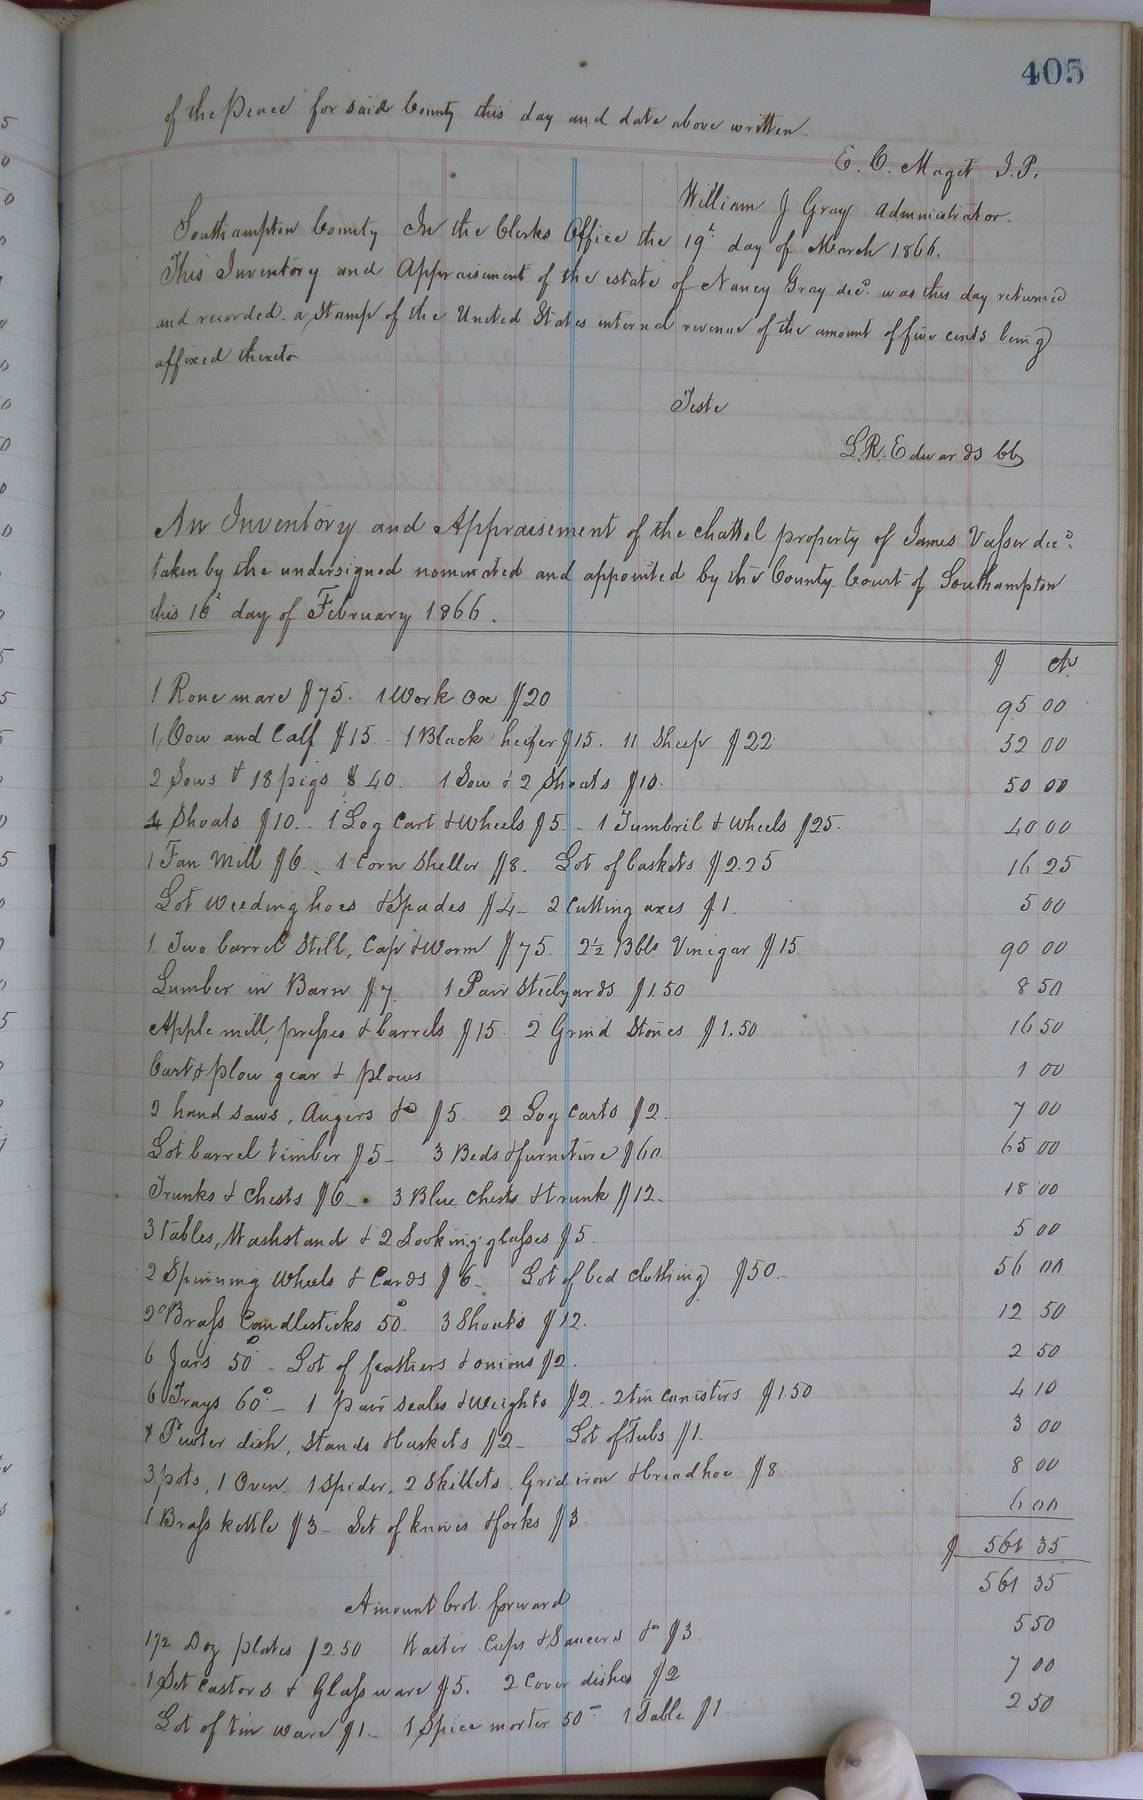 405
of the Peace for said County this day and date above written.
E. C. Maget J.P.
William J Gray Administrator.
Southampton County In the Clerks Office the 19t day of March 1866.
This Inventory and Appraisement of the estate of Nancy Gray decd. was this day returned
and recorded. a Stamp of the United States internal revenue of the amount of five cents being
affixed thereto
Teste
L.R. Edwards CC
An Inventory and Appraisement of the chattel property of James Vasser decd.
taken by the undersigned nominated and appointed by the County Court of Southampton
this 16t day of February 1866.
$ cts
1 Rone mare $75. 1 Work Ox $20 95 00
1 Cow and Calf $15 - 1 Black heifer $15. 11 Sheep $22 52 00
2 Sows & 18 pigs $40. 1 Sow & 2 Shoats $10. 50 00
4 Shoats $10.. 1 Log Cart & Wheels $5 - 1 Tumbril & Wheels $25. 40 00
1 Fan Mill $6 - 1 Corn Sheller $8. Lot of baskets $2.25 16 25
Lot weeding hoes & Spades $4 - 2 Cutting axes $1. 5 00
1 Two barrel Still, Cap & Worm $75. 2½ Bbls Vinegar $15 90 00
Lumber in Barn $7 1 Pair Steelyards $1.50 8 50
Apple mill, presses & barrels $15. 2 Grind Stones $1.50 16 50
Cart & plow gear & plows 1 00
2 hand saws, Augers &c $5. 2 Log Carts $2. 7 00
Lot barrel timber $5 - 3 Beds & furniture $60. 65 00
Trunks & Chests $6 - 3 Blue Chests & trunk $12 - 18 00
3 Tables, Washstand & 2 Looking glasses $5. 5 00
2 Spinning Wheels & Cards $6 - Lot of bed clothing $50 - 56 00
2 Brass Candlesticks 50c. 3 Shoats $12. 12 50
6 Jars 50c - Lot of feathers & onions $2. 2 50
6 Trays 60c - 1 pair scales & Weights $2 - 2 tin canisters $1.50 4 10
Pewter dish, Stands & baskets $2 - Lot of Tubs $1. 3 00
3 pots, 1 Oven. 1 Spider. 2 Skillets. Grid iron & bread hoe $8 8 00
1 Brass kettle $3 - Set of knives & forks $3 6 00
$ 561 35
Amount brot. forward 561 35
1½ Doz plates $2.50 Waiter Cups & Saucers &c $3. 5 50
1 Set Castors & Glass ware $5. 2 Cover dishes $2 7 00
Lot of tin ware $1 - 1 Spice morter 50c 1 Table $1. 2 50